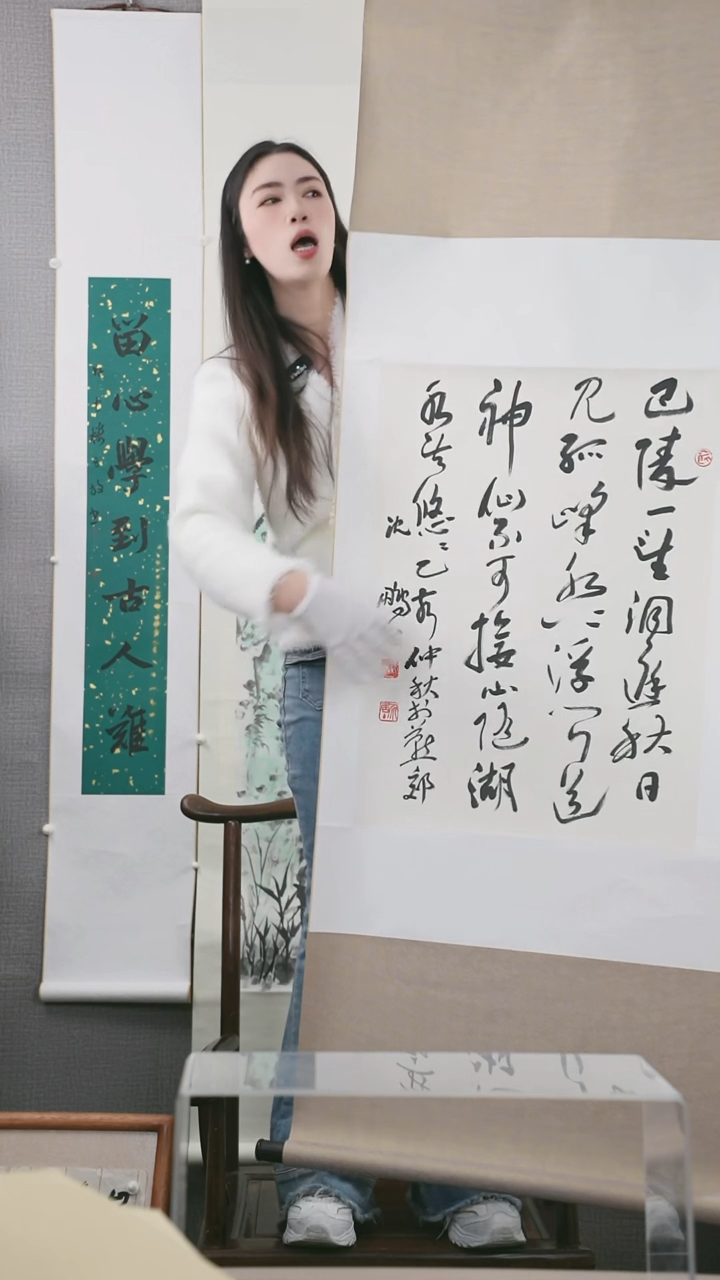 巴陵一望洞庭秋日
见孤峰水上浮闻道
神仙不可接心随湖
水共悠〻乙亥仲秋於燕郊
沈鹏
留心學到古人難